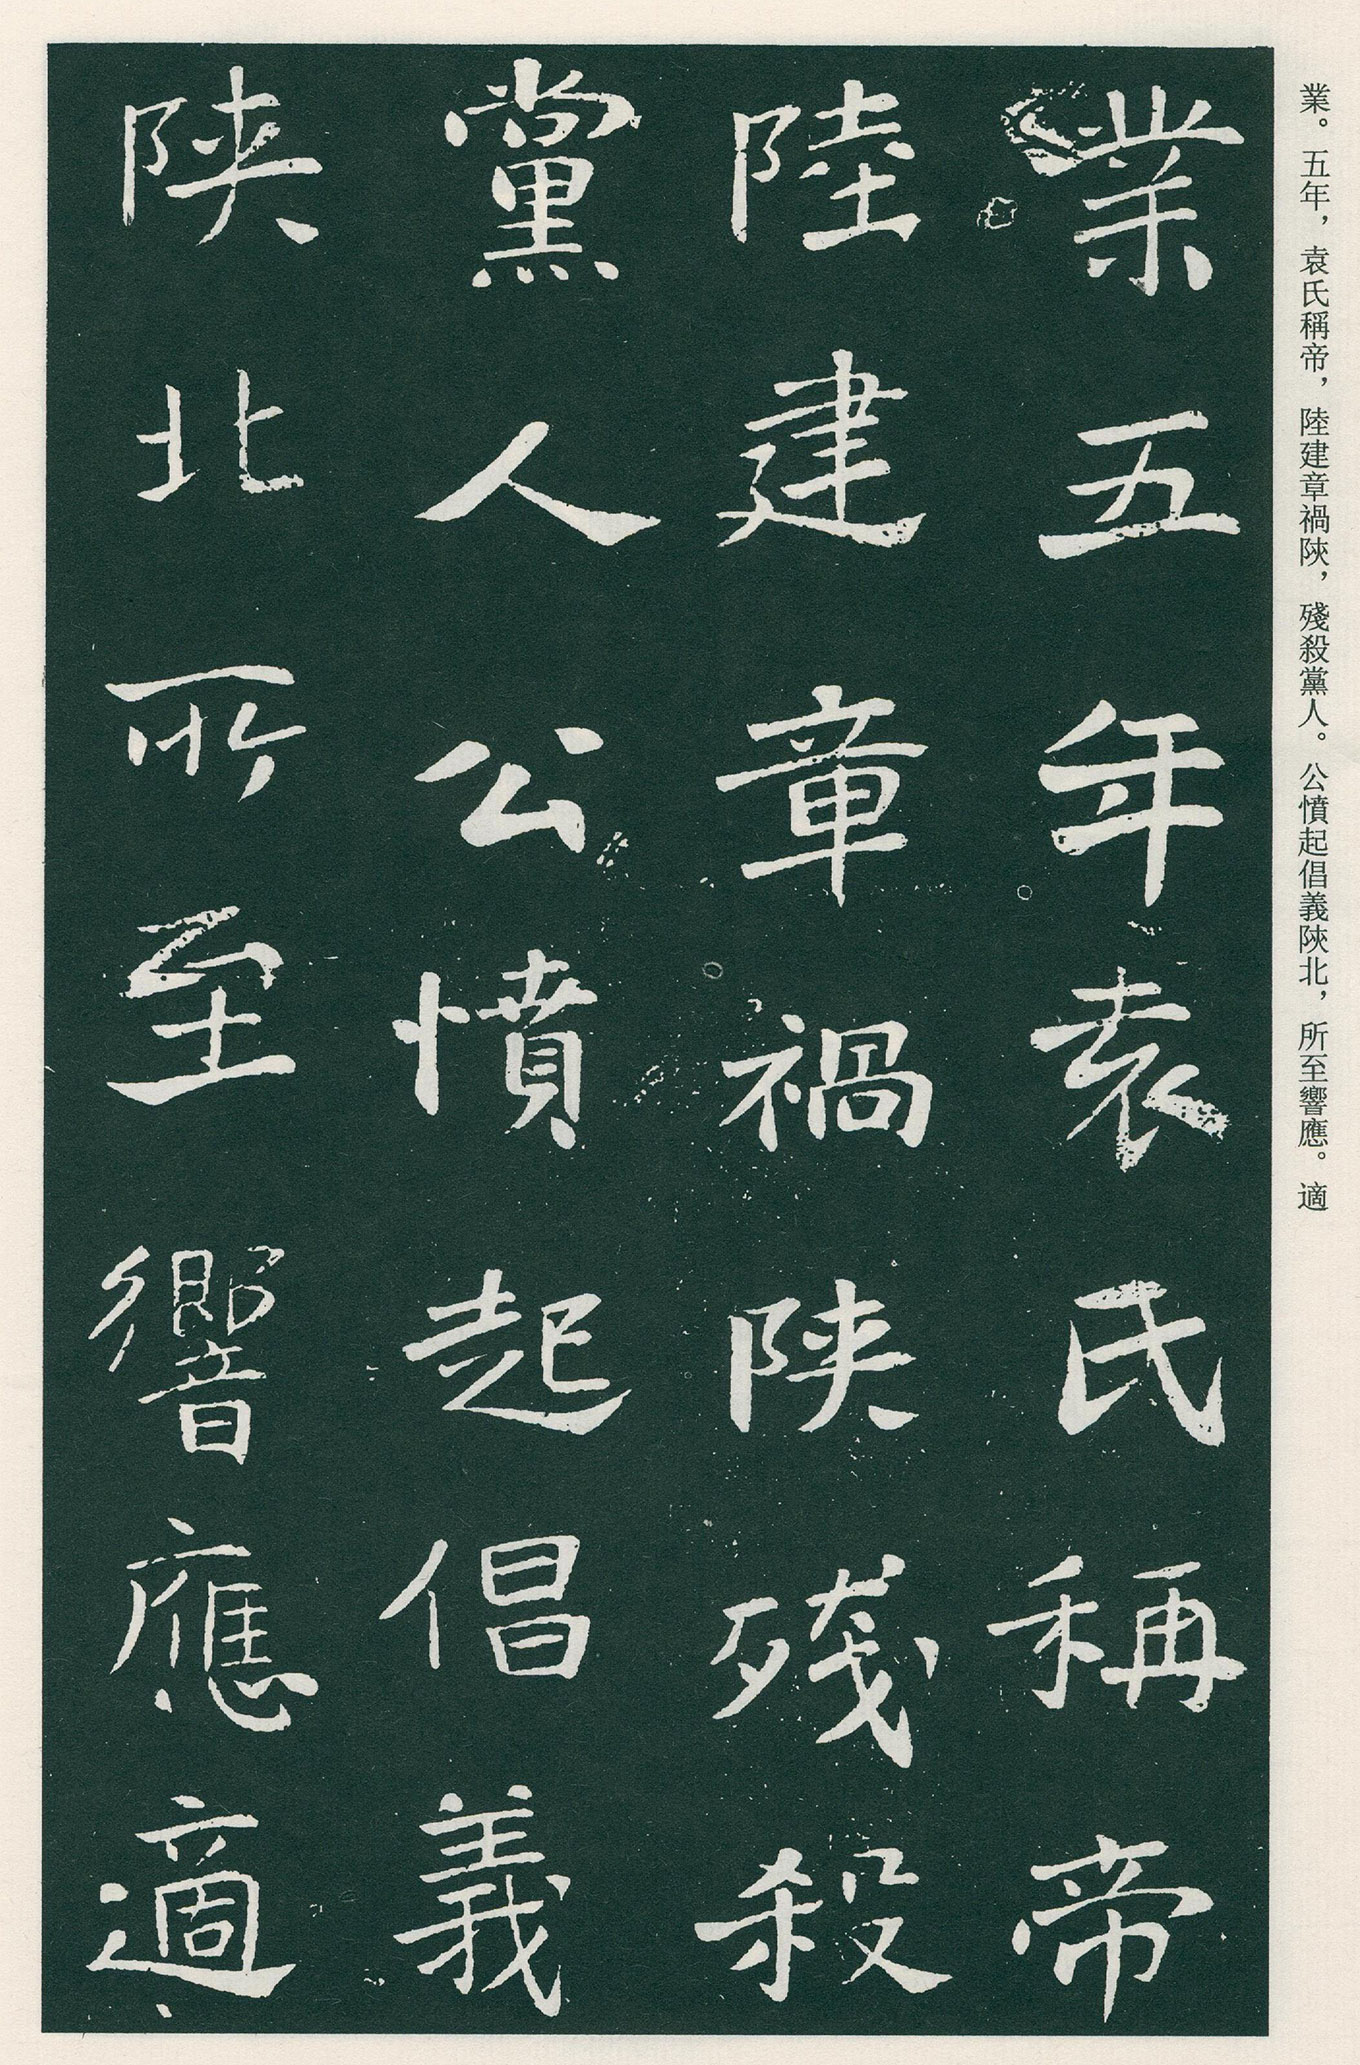 業。五年，袁氏稱帝，陸建章禍陝，殘殺黨人。公憤起倡義陝北，所至響應。適
業五年袁氏稱帝
陸建章禍陝殘殺
黨人公憤起倡義
陝北所至響應適